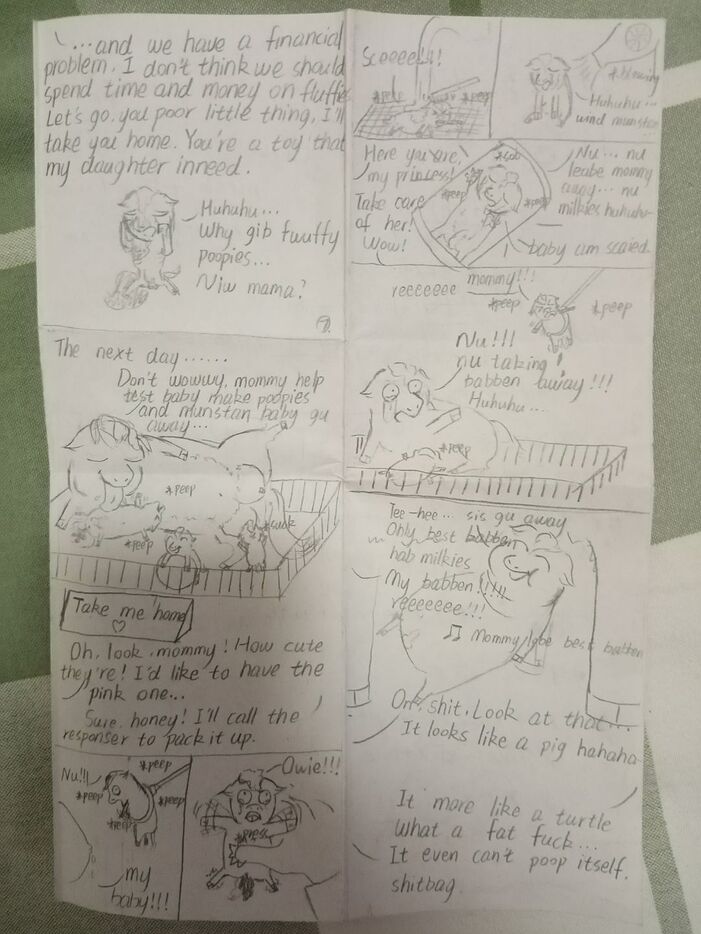 ...and we have a financial
problem. I don't think we should
spend time and money on fluffie
Let's go, you poor little thing, I'll
take you home. You're a toy that
my daughter inneed.
Huhuhu...
Why gib fwuffy
poopies...
Niw mama?
7.
The next day......
Don't wowwy, mommy help
test baby make poopies
and munstan baby gu
away...
*peep
*suck
*peep
Take me home
♡
Oh, look, mommy! How cute
they're! I'd like to have the
pink one...
Sure, honey! I'll call the
responser to pack it up.
Nu!!!
*peep
*peep
*peep
*peep
my
baby!!!
Owie!!!
Sceeee!!!
*peep
*peep
*blowing
Huhuhu...
wind munstan
Here you are,
my princess!
Take care
of her!
Wow!
*sob
*peep
*peep
Nu... nu
leabe mommy
away... nu
milkies huhuhu-
baby am scaied
reeeeeee mommy!!!
*peep
*peep
Nu!!!
nu taking
babben away!!!
Huhuhu...
*peep
Tee-hee... sis gu away
Only best babben
hab milkies
My babben!!!!!
reeeeeee!!!
♫ Mommy lobe best babben
Oh, shit. Look at that...!
It looks like a pig hahaha
It more like a turtle
What a fat fuck...
It even can't poop itself.
shitbag.